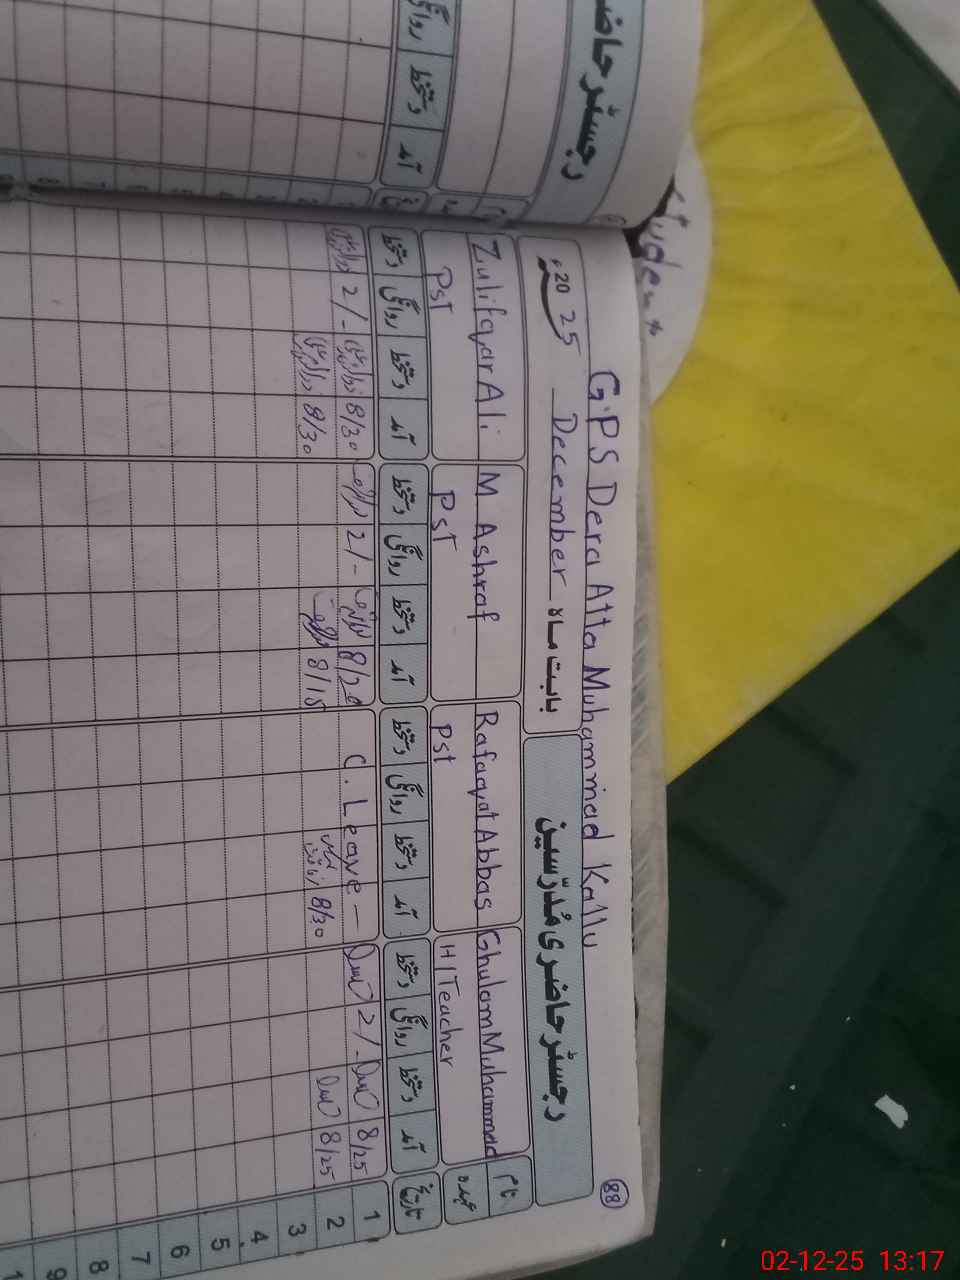 رجسٹر حاضری
دستخط
آمد
Student
G.P.S Dera Atta Muhammad Kallu
88
رجسٹر حاضری مُدرّسین
بابت ماہ December 2025ء
نام Ghulam Muhammad Rafaqat Abbas M Ashraf Zulifqar Ali
عہدہ H/Teacher Pst Pst Pst
تاریخ آمد دستخط روانگی دستخط آمد دستخط روانگی دستخط آمد دستخط روانگی دستخط آمد دستخط روانگی دستخط
1 8/25 2/- C. Leave - 8/20 2/- 8/30 2/-
2 8/25 8/30 رفاقت عباس 8/15 8/30
3
4
5
6
7
8
9
02-12-25 13:17